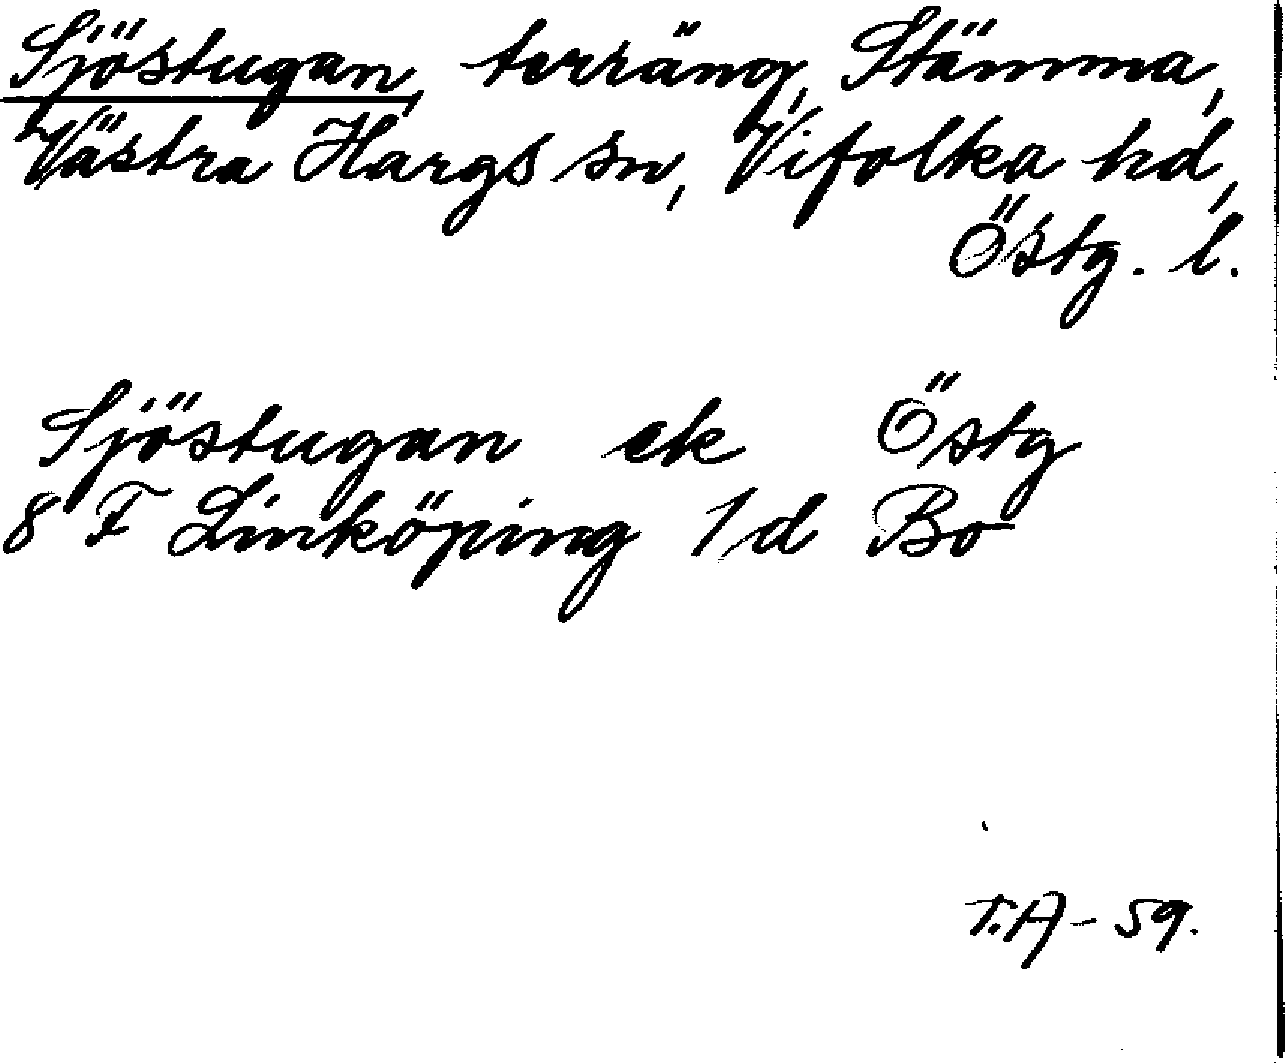 Sjöstugan, terräng, Stämma,
Västra Hargs sn, Vifolka hd,
Östg. l.
Sjöstugan ek Östg
8 F Linköping 1d Bo
T.A - 59.